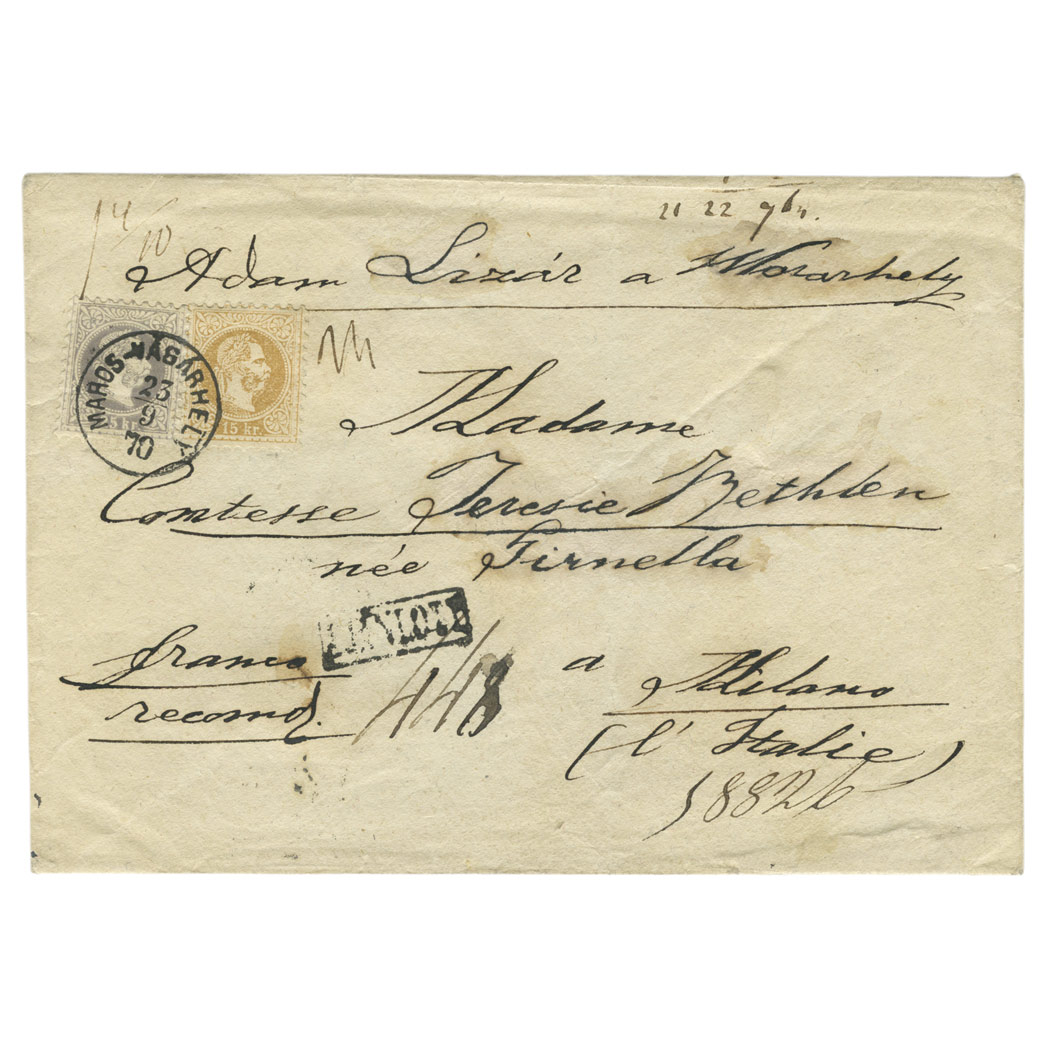 21 22 9br.
14/10
Adam Lizár a Msarhely
MAROS-VÁSÁRHELY
23
9
70
15 kr.
Madame
Comtesse Teresie Bethlen
née Firnella
franco
recomd.
448
a
Milano
(l' Italie)
18826